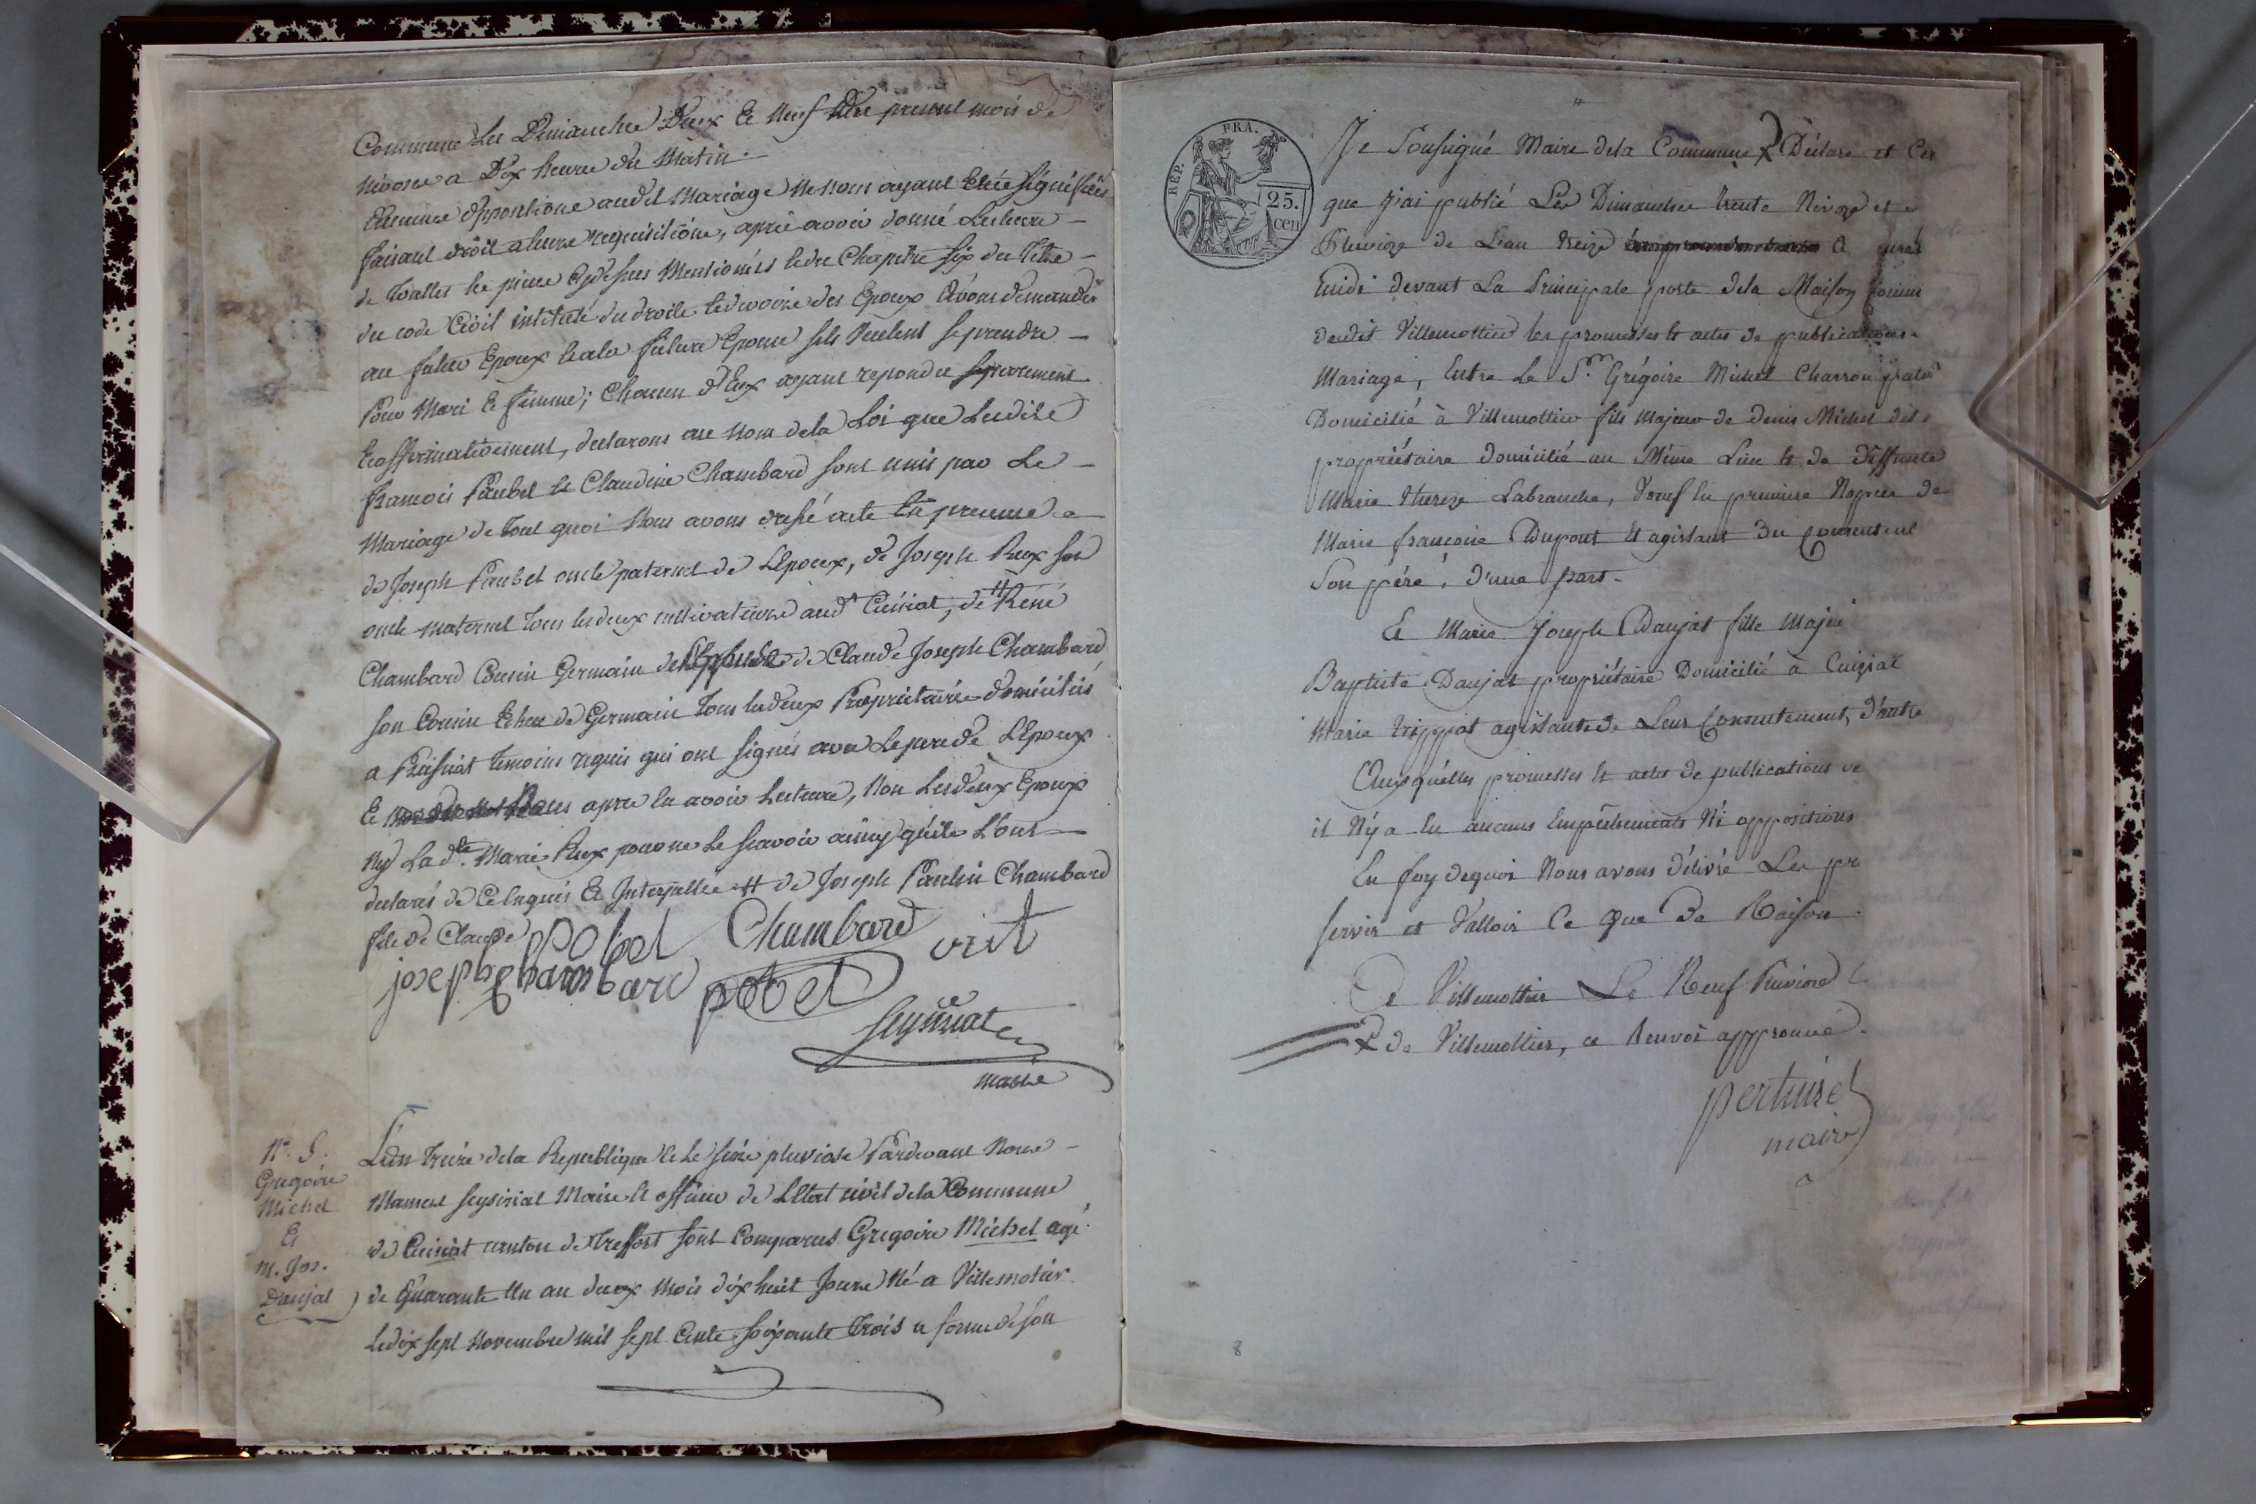 Commune Les Dimanche Deux Et Neuf du present mois de
Nivose a Dix heure du Matin.
Aucune opposition audit Mariage ne nous ayant Etée signifiée
faisant droit a leure requisitione, apres avoir donné Lecture
de Toutes les pieces Cydessus Mentionnés & du Chapitre Six du Titre
du code Civil intitulé du droits & devoirs des Epoux Avons demandé
au futur Epoux & a la future Epouse sils Veulent se prendre
Pour Mari & femme; Chacun d'Eux ayant repondu separement
& affirmativement, declarons au Nom de la Loi que Lesdits
francois Paubel & Claudine Chambard sont unis par Le
Mariage de Tout quoi Nous avons dressé acte En presence
de Joseph Paubel oncle paternel de L'Epoux, de Joseph Rux son
oncle maternel Tous les deux cultivateurs aud.t Cuisiat, de # René
Chambard Cousin Germain de de Claude Joseph Chambard
son Cousin de Germain Tous les deux Proprietaire domiciliés
a temoins requis qui ont signés avec Le pere de L'Epoux
Et Nous apres En avoir Lecture, Non Les deux Epoux
Ny La d.te Marie Rux pour ne Le scavoir ainsy qu'ils L'ont
declarés de Ce Enquis Et Interpellée # de Joseph Paulin Chambard
fils de Claude
pobel Chambard vrit
joseph chambard pobel
Seysiriat
maire
N.o 5.
Gregoire
Michel
Et
M. Jos.
Daujat
L'an Treize de la Republique & le seize pluviose Pardevant Nous
Mamert Seysiriat Maire & officier de L'Etat civil de la Commune
de Cuisiat canton de Treffort sont Comparus Gregoire Michel agé
de Quarante Un an deux Mois dix huit Jours Né a Villemotier
Le dix sept Novembre mil sept Cents soixante Trois en forme de son
RÉP. FRA.
25.
cen
Je Soussigné Maire dela Commune X Déclare et Cer
que j'ai publié Les Dimanches trente Nivoze et
Pluvioze de L'an treize
midi devant La Principale porte dela Maison
dudit Villemottier les promesses & actes de publications
Mariage, Entre Le S.r Grégoire Michel Charron
Domicilié à Villemottier fils Majeur de Denis Michel
propriétaire domicilié au Même Lieu & de Deffunte
Marie Thereze Labranche, Vœuf En premiere Nopces de
Marie francoise Dupont Et agissant Du Consentement
Son pére, d'une part.
Et Marie Joseph Daujat fille Maje
Baptiste Daujat propriétaire Domicilié à Cuiziat
Marie trippot agissante de Leur Consentement, d'autre
Auxquelles promesses & actes de publications
il N'y a Eu aucuns Empêchements Ni oppositions
En foy dequoi Nous avons délivré Les pr
servir et Valloir Ce que De Raison.
A Villemottier Le Neuf Pluviose
X de Villemottier, ce Renvoi approuvé.
pertuiset
maire
8